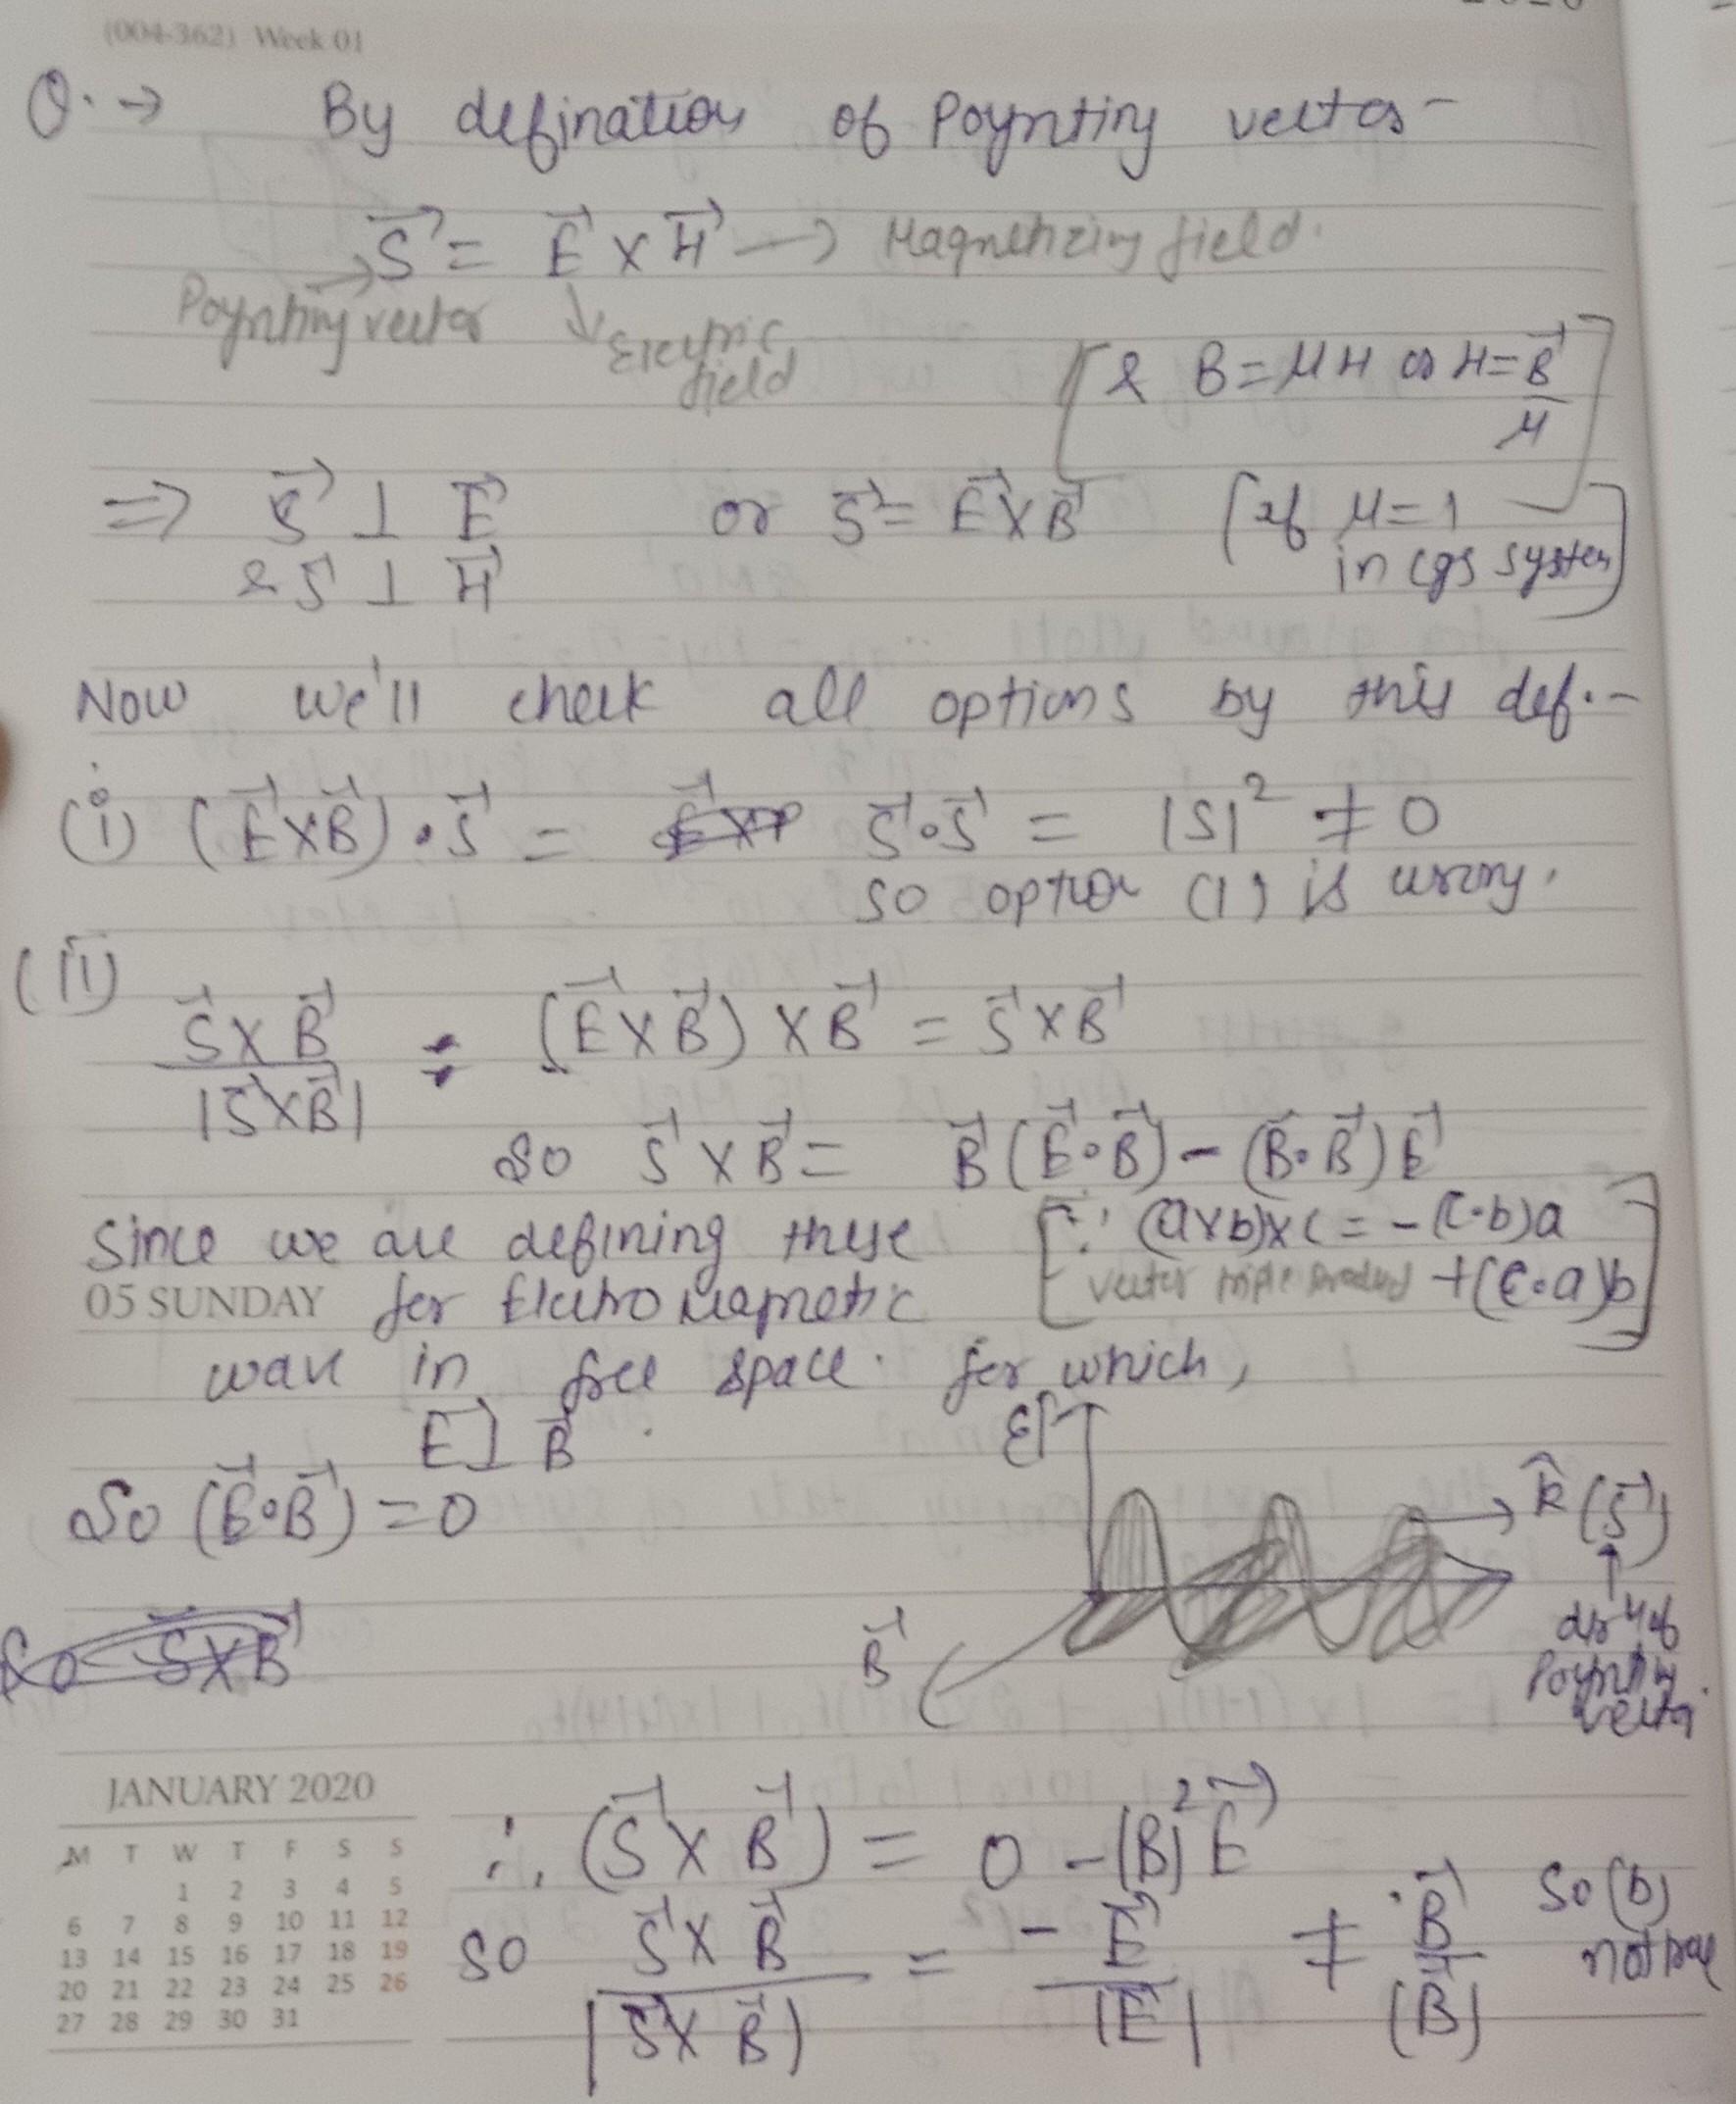 (004-362) Week 01
Q. → By defination of Poynting vector -
S⃗ = E⃗ × H⃗ → Magnetizing field.
Poynting vector
Electric field
[& B = μH or H = B⃗/μ]
⇒ S⃗ ⊥ E⃗ or S⃗ = E⃗ × B⃗ [if μ = 1
& S⃗ ⊥ H⃗ in cgs system]
Now we'll check all options by this def. -
(i) (E⃗ × B⃗) • S⃗ = S⃗ • S⃗ = |S|² ≠ 0
so option (1) is wrong.
(ii)
S⃗ × B⃗ / |S⃗ × B⃗| : (E⃗ × B⃗) × B⃗ = S⃗ × B⃗
so S⃗ × B⃗ = B⃗ (E⃗ • B⃗) - (B⃗ • B⃗) E⃗
Since we are defining these [∵ (a×b)×c = -(c•b)a
05 SUNDAY for Electro Magnetic vector triple product +(c•a)b]
wave in free space. for which,
E⃗ ⊥ B⃗
So (E⃗ • B⃗) = 0
E⃗
k̂ (S⃗)
B⃗
dirⁿ of
Poynting
vector.
So S⃗ × B⃗
JANUARY 2020
M T W T F S S
1 2 3 4 5
6 7 8 9 10 11 12
13 14 15 16 17 18 19
20 21 22 23 24 25 26
27 28 29 30 31
∴ (S⃗ × B⃗) = 0 - |B|² E⃗
so S⃗ × B⃗ / |S⃗ × B⃗| = - E⃗ / |E⃗| ≠ B⃗ / |B⃗| So (b)
not true